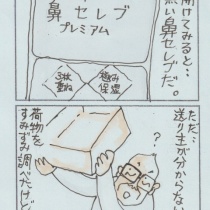 開けてみると…
無い鼻セレブだ。
鼻セレブ
プレミアム
3枚
重ね
極み
保湿
ただ…
送り主が分からない
?
荷物を
すみずみ調べたけど